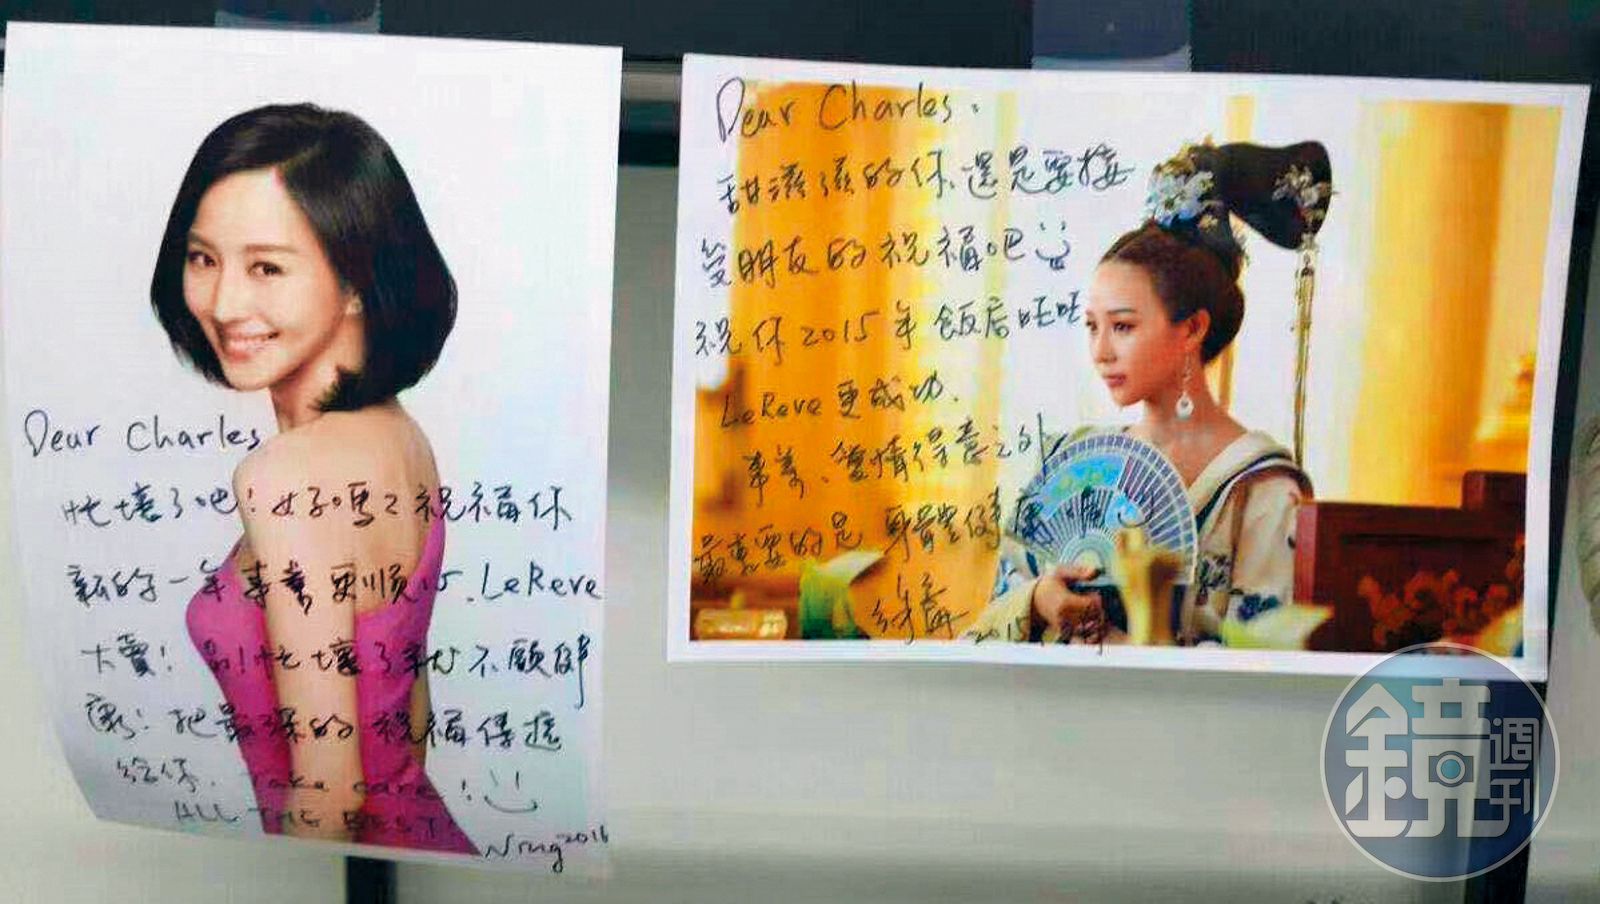 Dear Charles
忙壞了吧！好嗎？祝福你
新的一年事業更順心、LeReve
大賣！別忙壞了就不顧健
康！把最深的祝福傳遞
給你. Take care!
ALL THE BEST!
Ning 2016
Dear Charles.
甜滋滋的你還是要接
受朋友的祝福吧
祝你2015年飯店旺旺
LeReve更成功.
事業、愛情得意之外
最重要的是身體健康哦
2015
鏡週刊